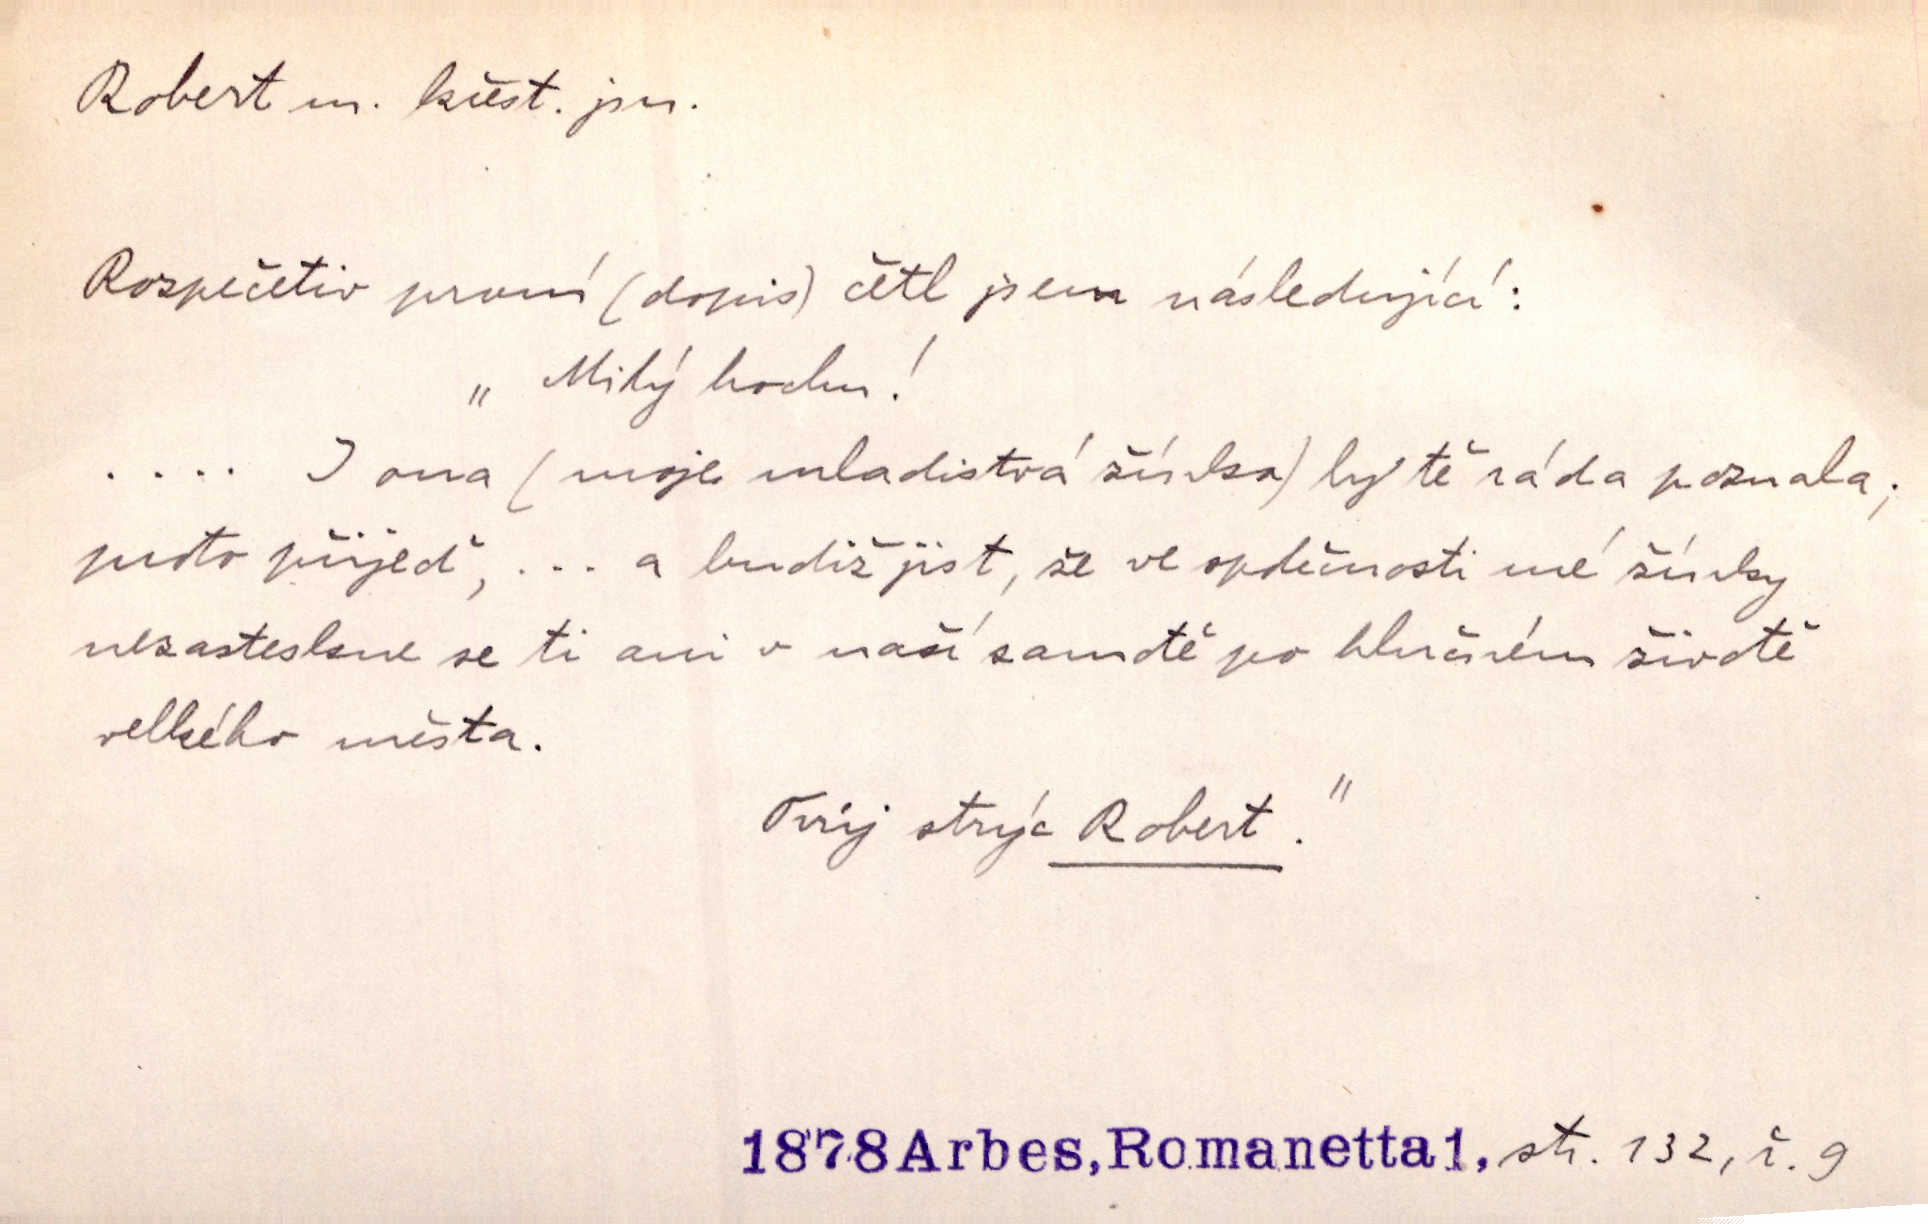 Robert m. křest. jm.
Rozpečetiv první (dopis) četl jsem následující:
„Milý hochu!
.... I ona (moje mladistvá žínka) by tě ráda poznala;
proto přijeď, ... a budiž jist, že ve společnosti mé žínky
nezasteskne se ti ani v naší samotě po hlučném životě
velkého města.
Tvůj strýc Robert."
1878 Arbes, Romanetta 1, str. 132, ř. 9